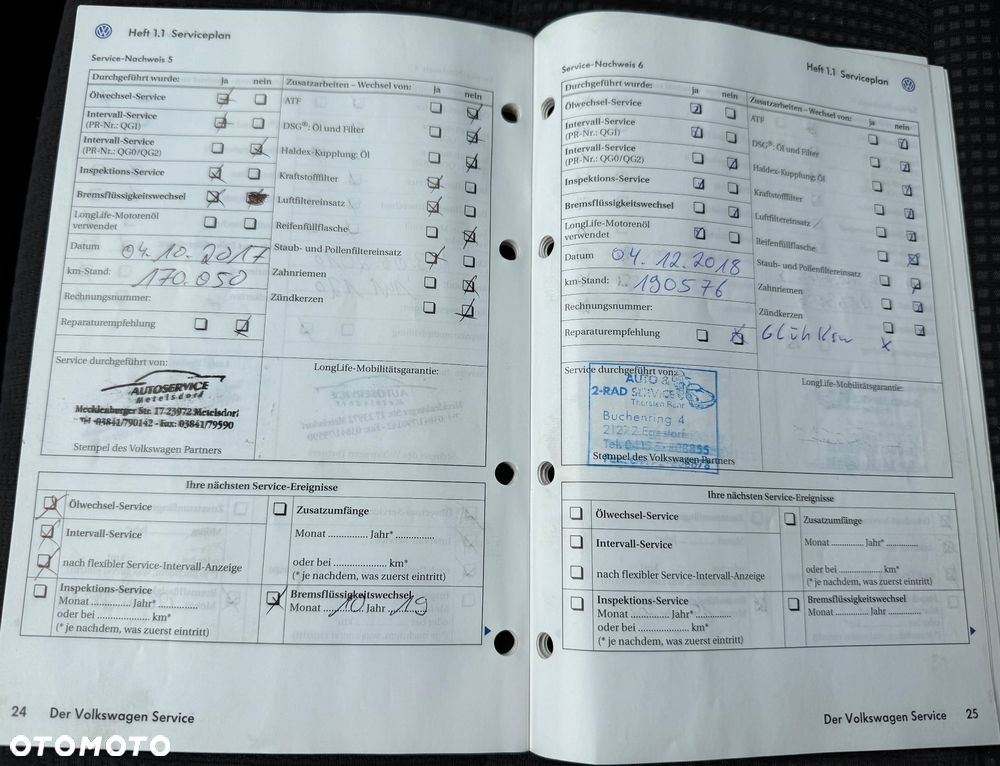 Heft 1.1 Serviceplan
Service-Nachweis 5
Durchgeführt wurde: ja nein
Ölwechsel-Service
Intervall-Service
(PR-Nr.: QGI)
Intervall-Service
(PR-Nr.: QG0/QG2)
Inspektions-Service
Bremsflüssigkeitswechsel
LongLife-Motorenöl
verwendet
Datum 04.10.2017
km-Stand: 170.050
Rechnungsnummer:
Reparaturempfehlung
Zusatzarbeiten – Wechsel von: ja nein
ATF
DSG®: Öl und Filter
Haldex-Kupplung: Öl
Kraftstofffilter
Luftfiltereinsatz
Reifenfüllflasche
Staub- und Pollenfiltereinsatz
Zahnriemen
Zündkerzen
Service durchgeführt von:
AUTOSERVICE
Metelsdorf
Mecklenburger Str. 17 · 23972 Metelsdorf
Tel 03841/790142 - Fax: 03841/79590
Stempel des Volkswagen Partners
LongLife-Mobilitätsgarantie:
Ihre nächsten Service-Ereignisse
Ölwechsel-Service
Intervall-Service
nach flexibler Service-Intervall-Anzeige
Inspektions-Service
Monat ............ Jahr* ............
oder bei .................... km*
(* je nachdem, was zuerst eintritt)
Zusatzumfänge
Monat ............ Jahr* ............
oder bei .................... km*
(* je nachdem, was zuerst eintritt)
Bremsflüssigkeitswechsel
Monat 10 Jahr 19
24 Der Volkswagen Service
OTOMOTO
Heft 1.1 Serviceplan
Service-Nachweis 6
Durchgeführt wurde: ja nein
Ölwechsel-Service
Intervall-Service
(PR-Nr.: QGI)
Intervall-Service
(PR-Nr.: QG0/QG2)
Inspektions-Service
Bremsflüssigkeitswechsel
LongLife-Motorenöl
verwendet
Datum 04.12.2018
km-Stand: 190576
Rechnungsnummer:
Reparaturempfehlung
Zusatzarbeiten – Wechsel von: ja nein
ATF
DSG®: Öl und Filter
Haldex-Kupplung: Öl
Kraftstofffilter
Luftfiltereinsatz
Reifenfüllflasche
Staub- und Pollenfiltereinsatz
Zahnriemen
Zündkerzen
x
Service durchgeführt von:
AUTO &
2-RAD SERVICE
Thorsten
Buchenring 4
Egestorf
Stempel des Volkswagen Partners
LongLife-Mobilitätsgarantie:
Ihre nächsten Service-Ereignisse
Ölwechsel-Service
Intervall-Service
nach flexibler Service-Intervall-Anzeige
Inspektions-Service
Monat ............ Jahr* ............
oder bei .................... km*
(* je nachdem, was zuerst eintritt)
Zusatzumfänge
Monat ............ Jahr* ............
oder bei .................... km*
(* je nachdem, was zuerst eintritt)
Bremsflüssigkeitswechsel
Monat ............ Jahr ............
Der Volkswagen Service 25